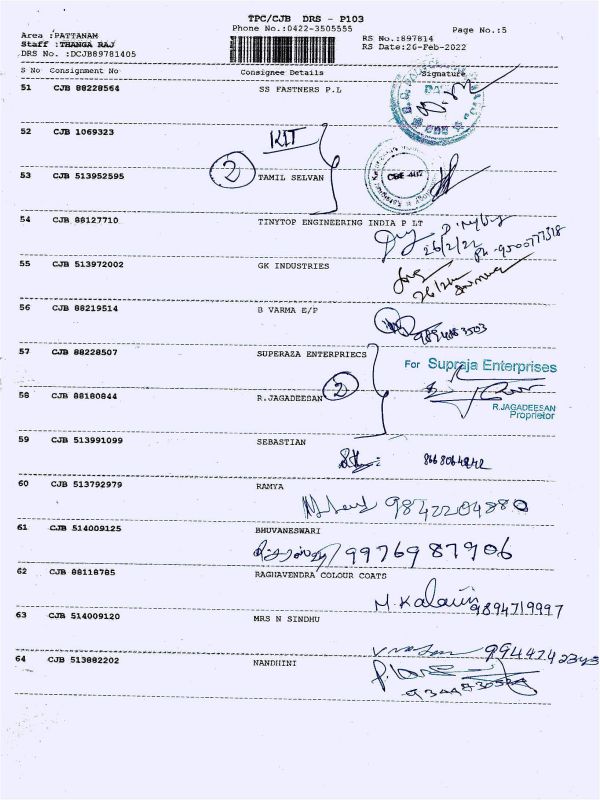 TPC/CJB DRS - P103
Phone No.:0422-3505555
Page No.:5
Area :PATTANAM
Staff :THANGA RAJ
DRS No. :DCJB89781405
RS No.:897814
RS Date:26-Feb-2022
S No Consignment No Consignee Details Signature
51 CJB 88228564 SS FASTNERS P.L
52 CJB 1069323 KIT
53 CJB 513952595 2 TAMIL SELVAN
54 CJB 88127710 TINYTOP ENGINEERING INDIA P LT
26/2/22
55 CJB 513972002 GK INDUSTRIES
56 CJB 88219514 B VARMA E/P
57 CJB 88228507 SUPERAZA ENTERPRIECS
For Supraja Enterprises
58 CJB 88180844 R.JAGADEESAN 2
R.JAGADEESAN
Proprietor
59 CJB 513991099 SEBASTIAN
60 CJB 513792979 RAMYA
9842204880
61 CJB 514009125 BHUVANESWARI
9976987906
62 CJB 88118785 RAGHAVENDRA COLOUR COATS
9894719997
63 CJB 514009120 MRS N SINDHU
64 CJB 513882202 NANDHINI